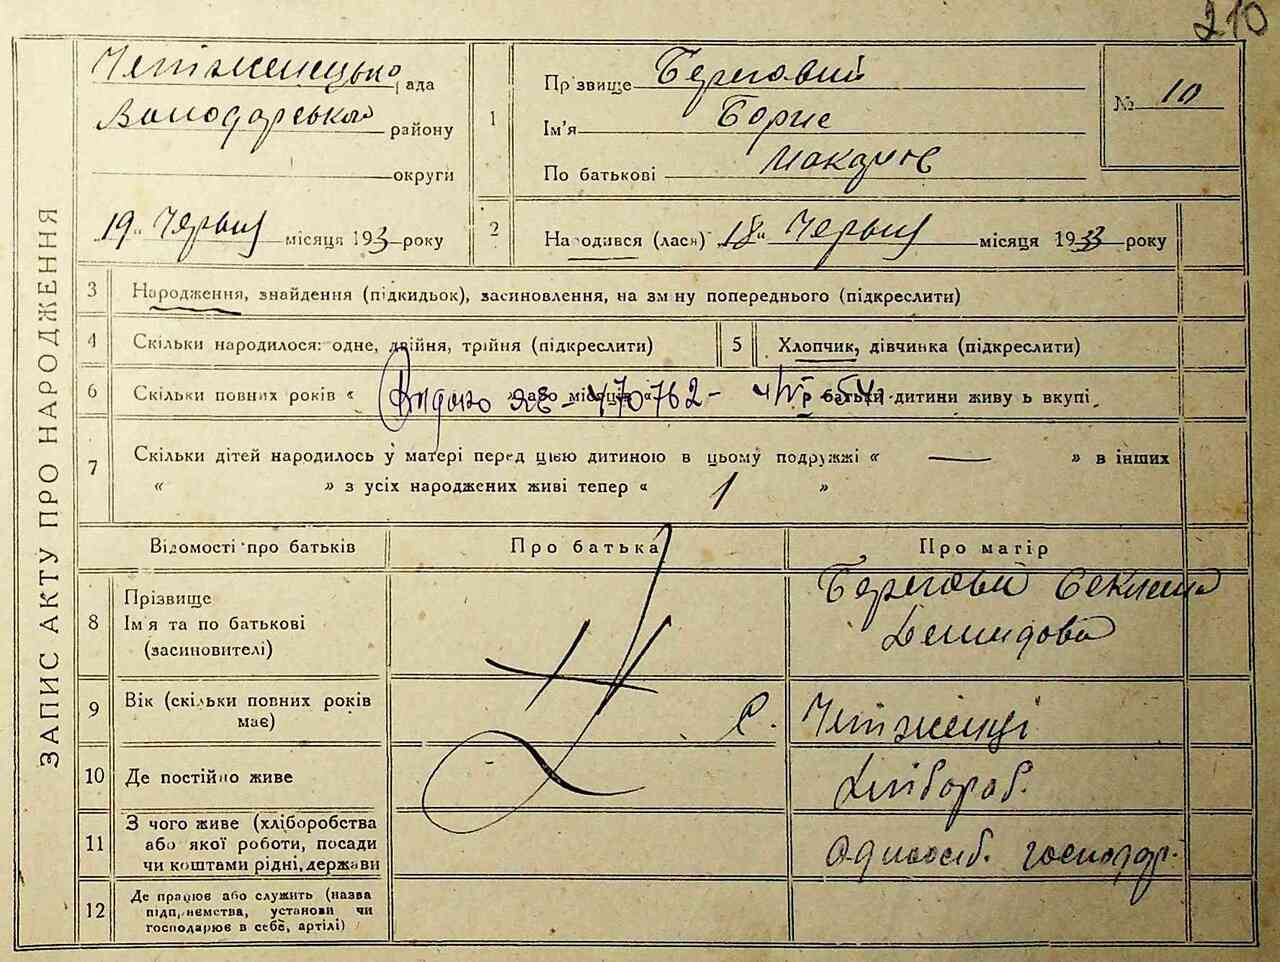 210
ЗАПИС АКТУ ПРО НАРОДЖЕННЯ
рада
Володарського району
округи
„19“ Червня місяця 1933 року
1 Прізвище Береговий
Ім'я Борис
По батькові
№ 10
2 Народився (лася) „18“ Червня місяця 1933 року
3 Народження, знайдення (підкидьок), засиновлення, на зміну попереднього (підкреслити)
4 Скільки народилося: одне, двійня, трійня (підкреслити)
5 Хлопчик, дівчинка (підкреслити)
6 Скільки повних років « » або місяців « батьки дитини живуть вкупі
Видано 470762 - 54
7 Скільки дітей народилось у матері перед цією дитиною в цьому подружжі « — » в інших
« » з усіх народжених живі тепер « 1 »
Відомості про батьків
Про батька
Про матір
8 Прізвище
Ім'я та по батькові
(засиновителі)
Берегова
Демидова
9 Вік (скільки повних років
має)
с.
10 Де постійно живе
Хлібороб.
11 З чого живе (хліборобства
або якої роботи, посади
чи коштами рідні, держави
Одноосіб. господар.
12 Де працює або служить (назва
підприємства, установи чи
господарює в себе, артілі)